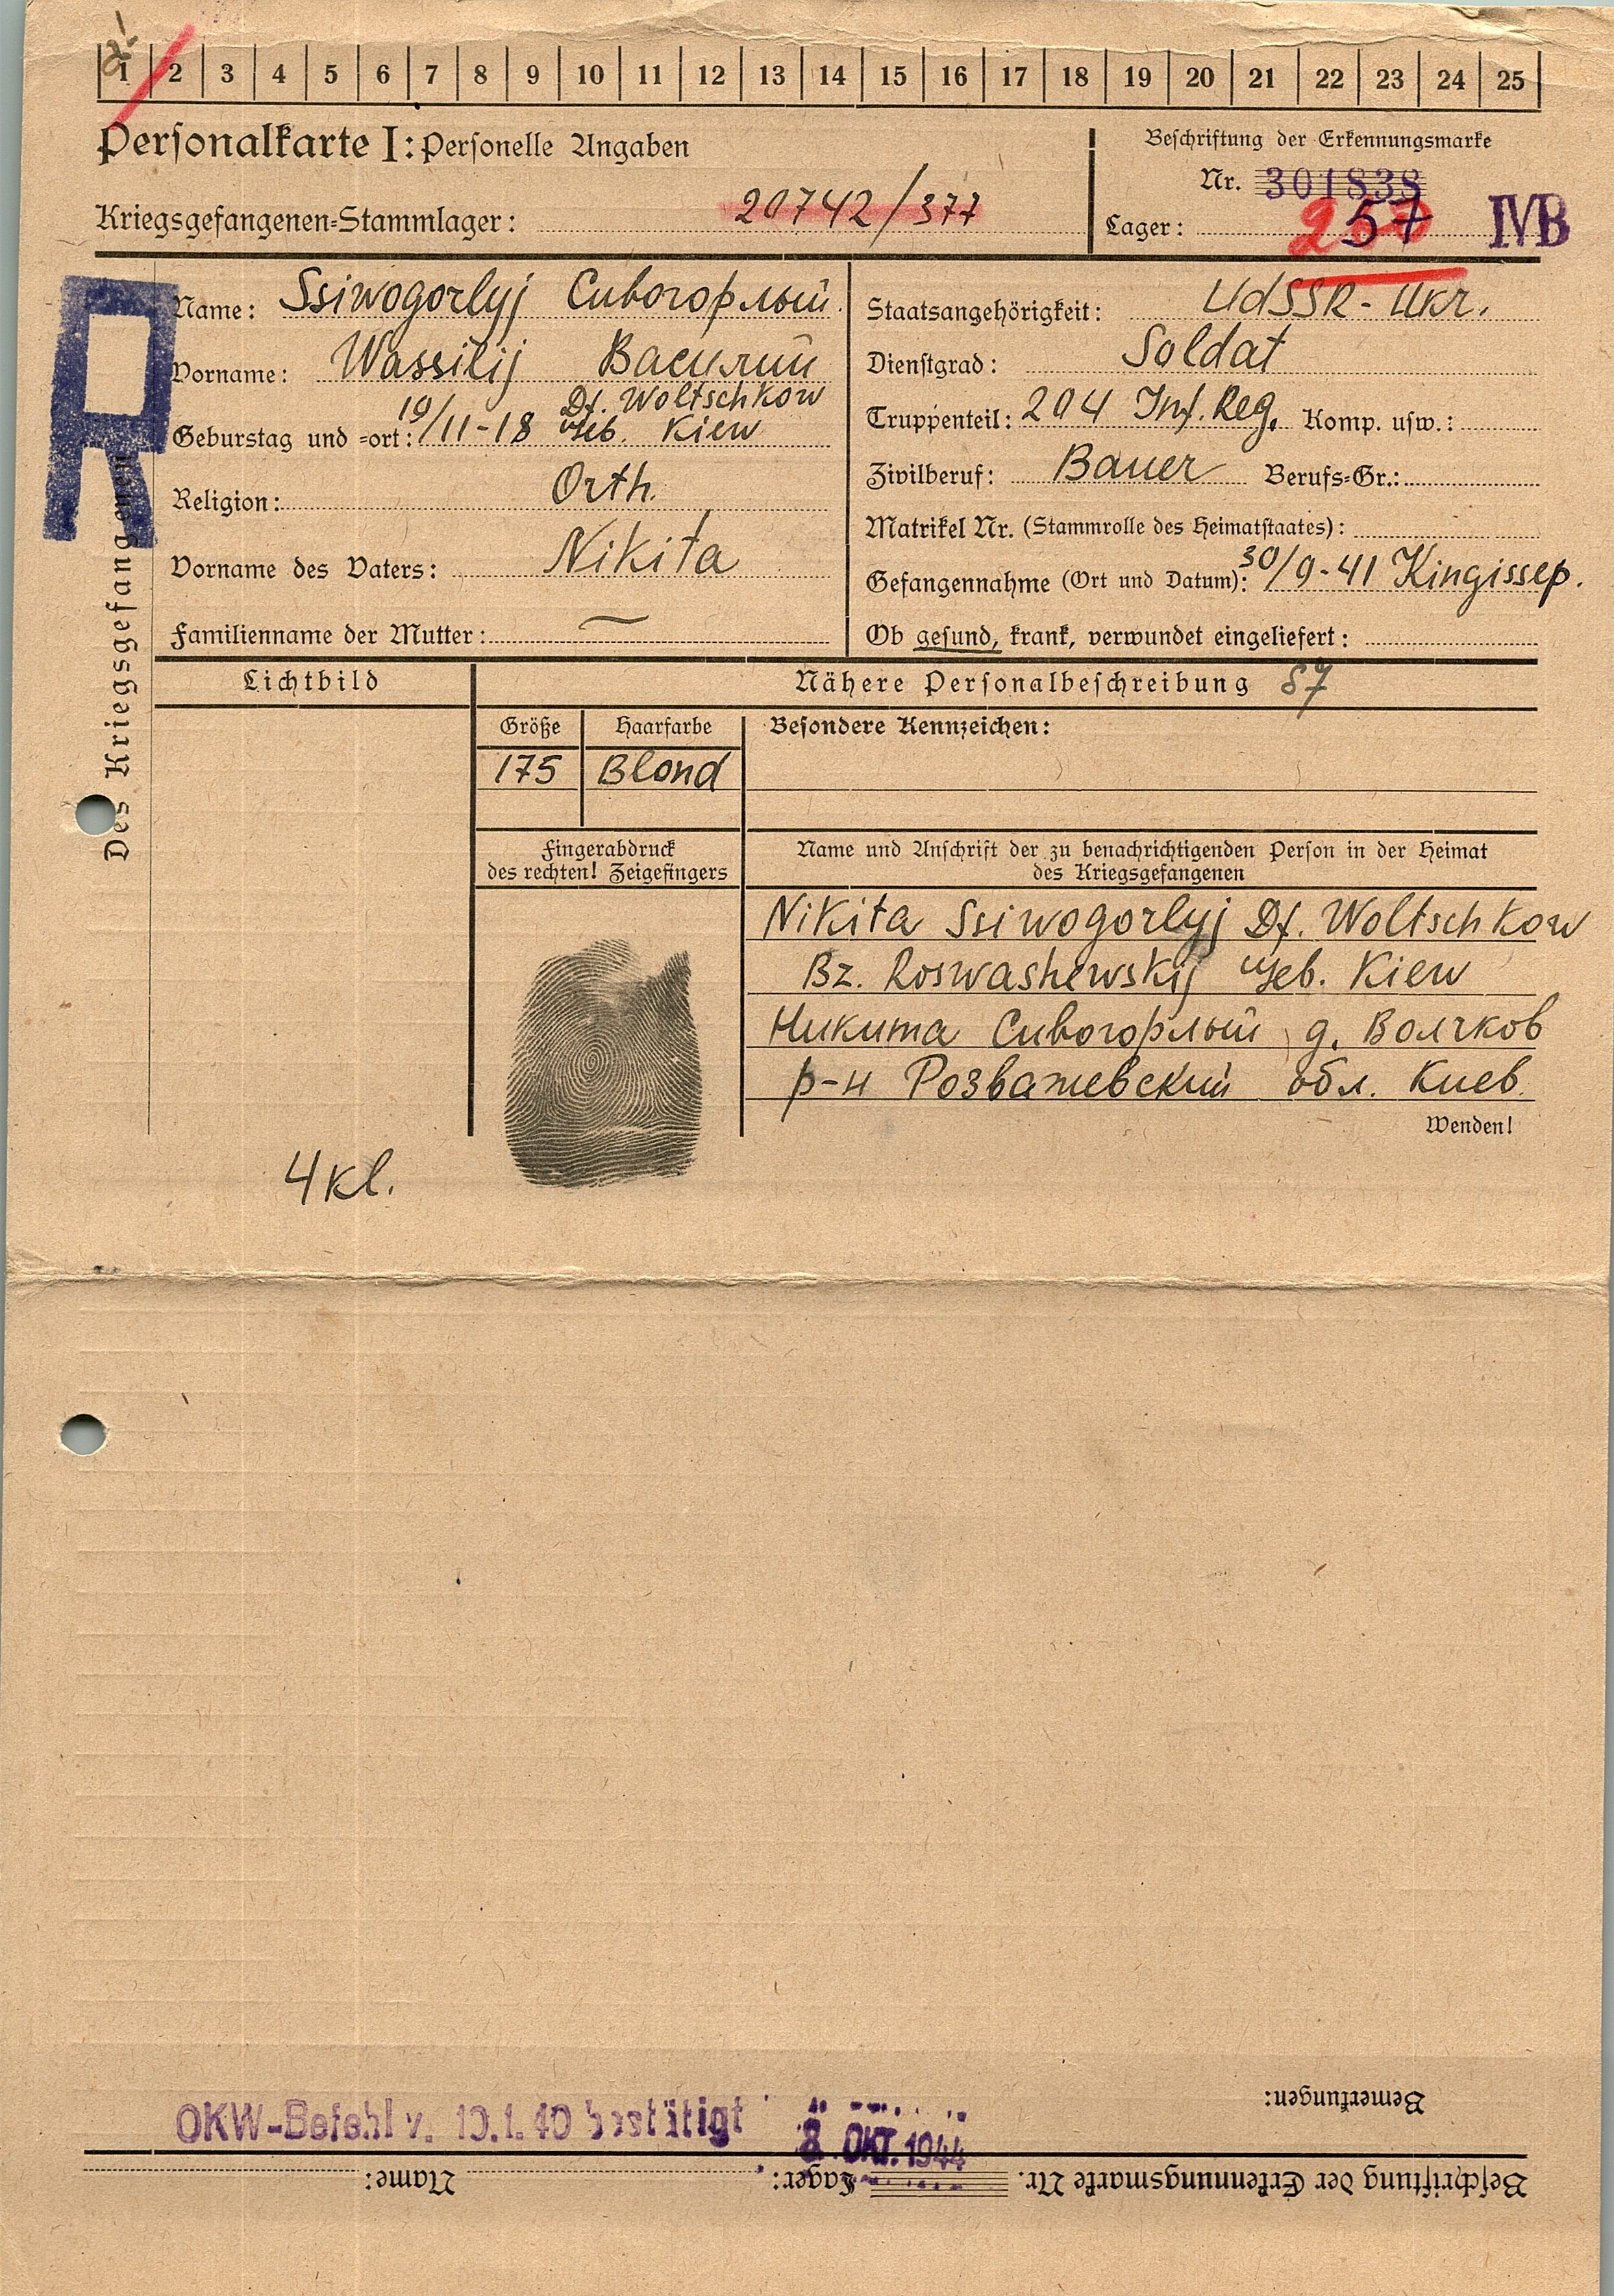 1 2 3 4 5 6 7 8 9 10 11 12 13 14 15 16 17 18 19 20 21 22 23 24 25
Personalkarte I: Personelle Angaben
Beschriftung der Erkennungsmarke
Nr. 301838
Kriegsgefangenen=Stammlager: 20742/377
Lager: IV B
R
Des Kriegsgefangenen
Name: Ssiwogorlyj Сивогорлый
Vorname: Wassilij Василий
Df. Woltschkow
Geburstag und =ort: 19/11-18 Geb. Kiew
Religion: Orth.
Vorname des Vaters: Nikita
Familienname der Mutter: —
Staatsangehörigkeit: UdSSR-Ukr.
Dienstgrad: Soldat
Truppenteil: 204 Inf. Reg. Komp. usw.:
Zivilberuf: Bauer Berufs=Gr.:
Matrikel Nr. (Stammrolle des Heimatstaates):
Gefangennahme (Ort und Datum): 30/9-41 Kingissep.
Ob gesund, krank, verwundet eingeliefert:
Lichtbild
Nähere Personalbeschreibung 87
Größe Haarfarbe Besondere Kennzeichen:
175 Blond
Fingerabdruck
des rechten! Zeigefingers
Name und Anschrift der zu benachrichtigenden Person in der Heimat
des Kriegsgefangenen
Nikita Ssiwogorlyj Df. Woltschkow
Bz. Roswashewskij Geb. Kiew
Никита Сивогорлый д. Волчков
р-н Розважевский обл. Киев.
Wenden!
4 kl.
Bemerkungen:
OKW-Befehl v. 10.1.40 bestätigt
8. OKT. 1944
Beschriftung der Erkennungsmarke Nr. Lager: Name: